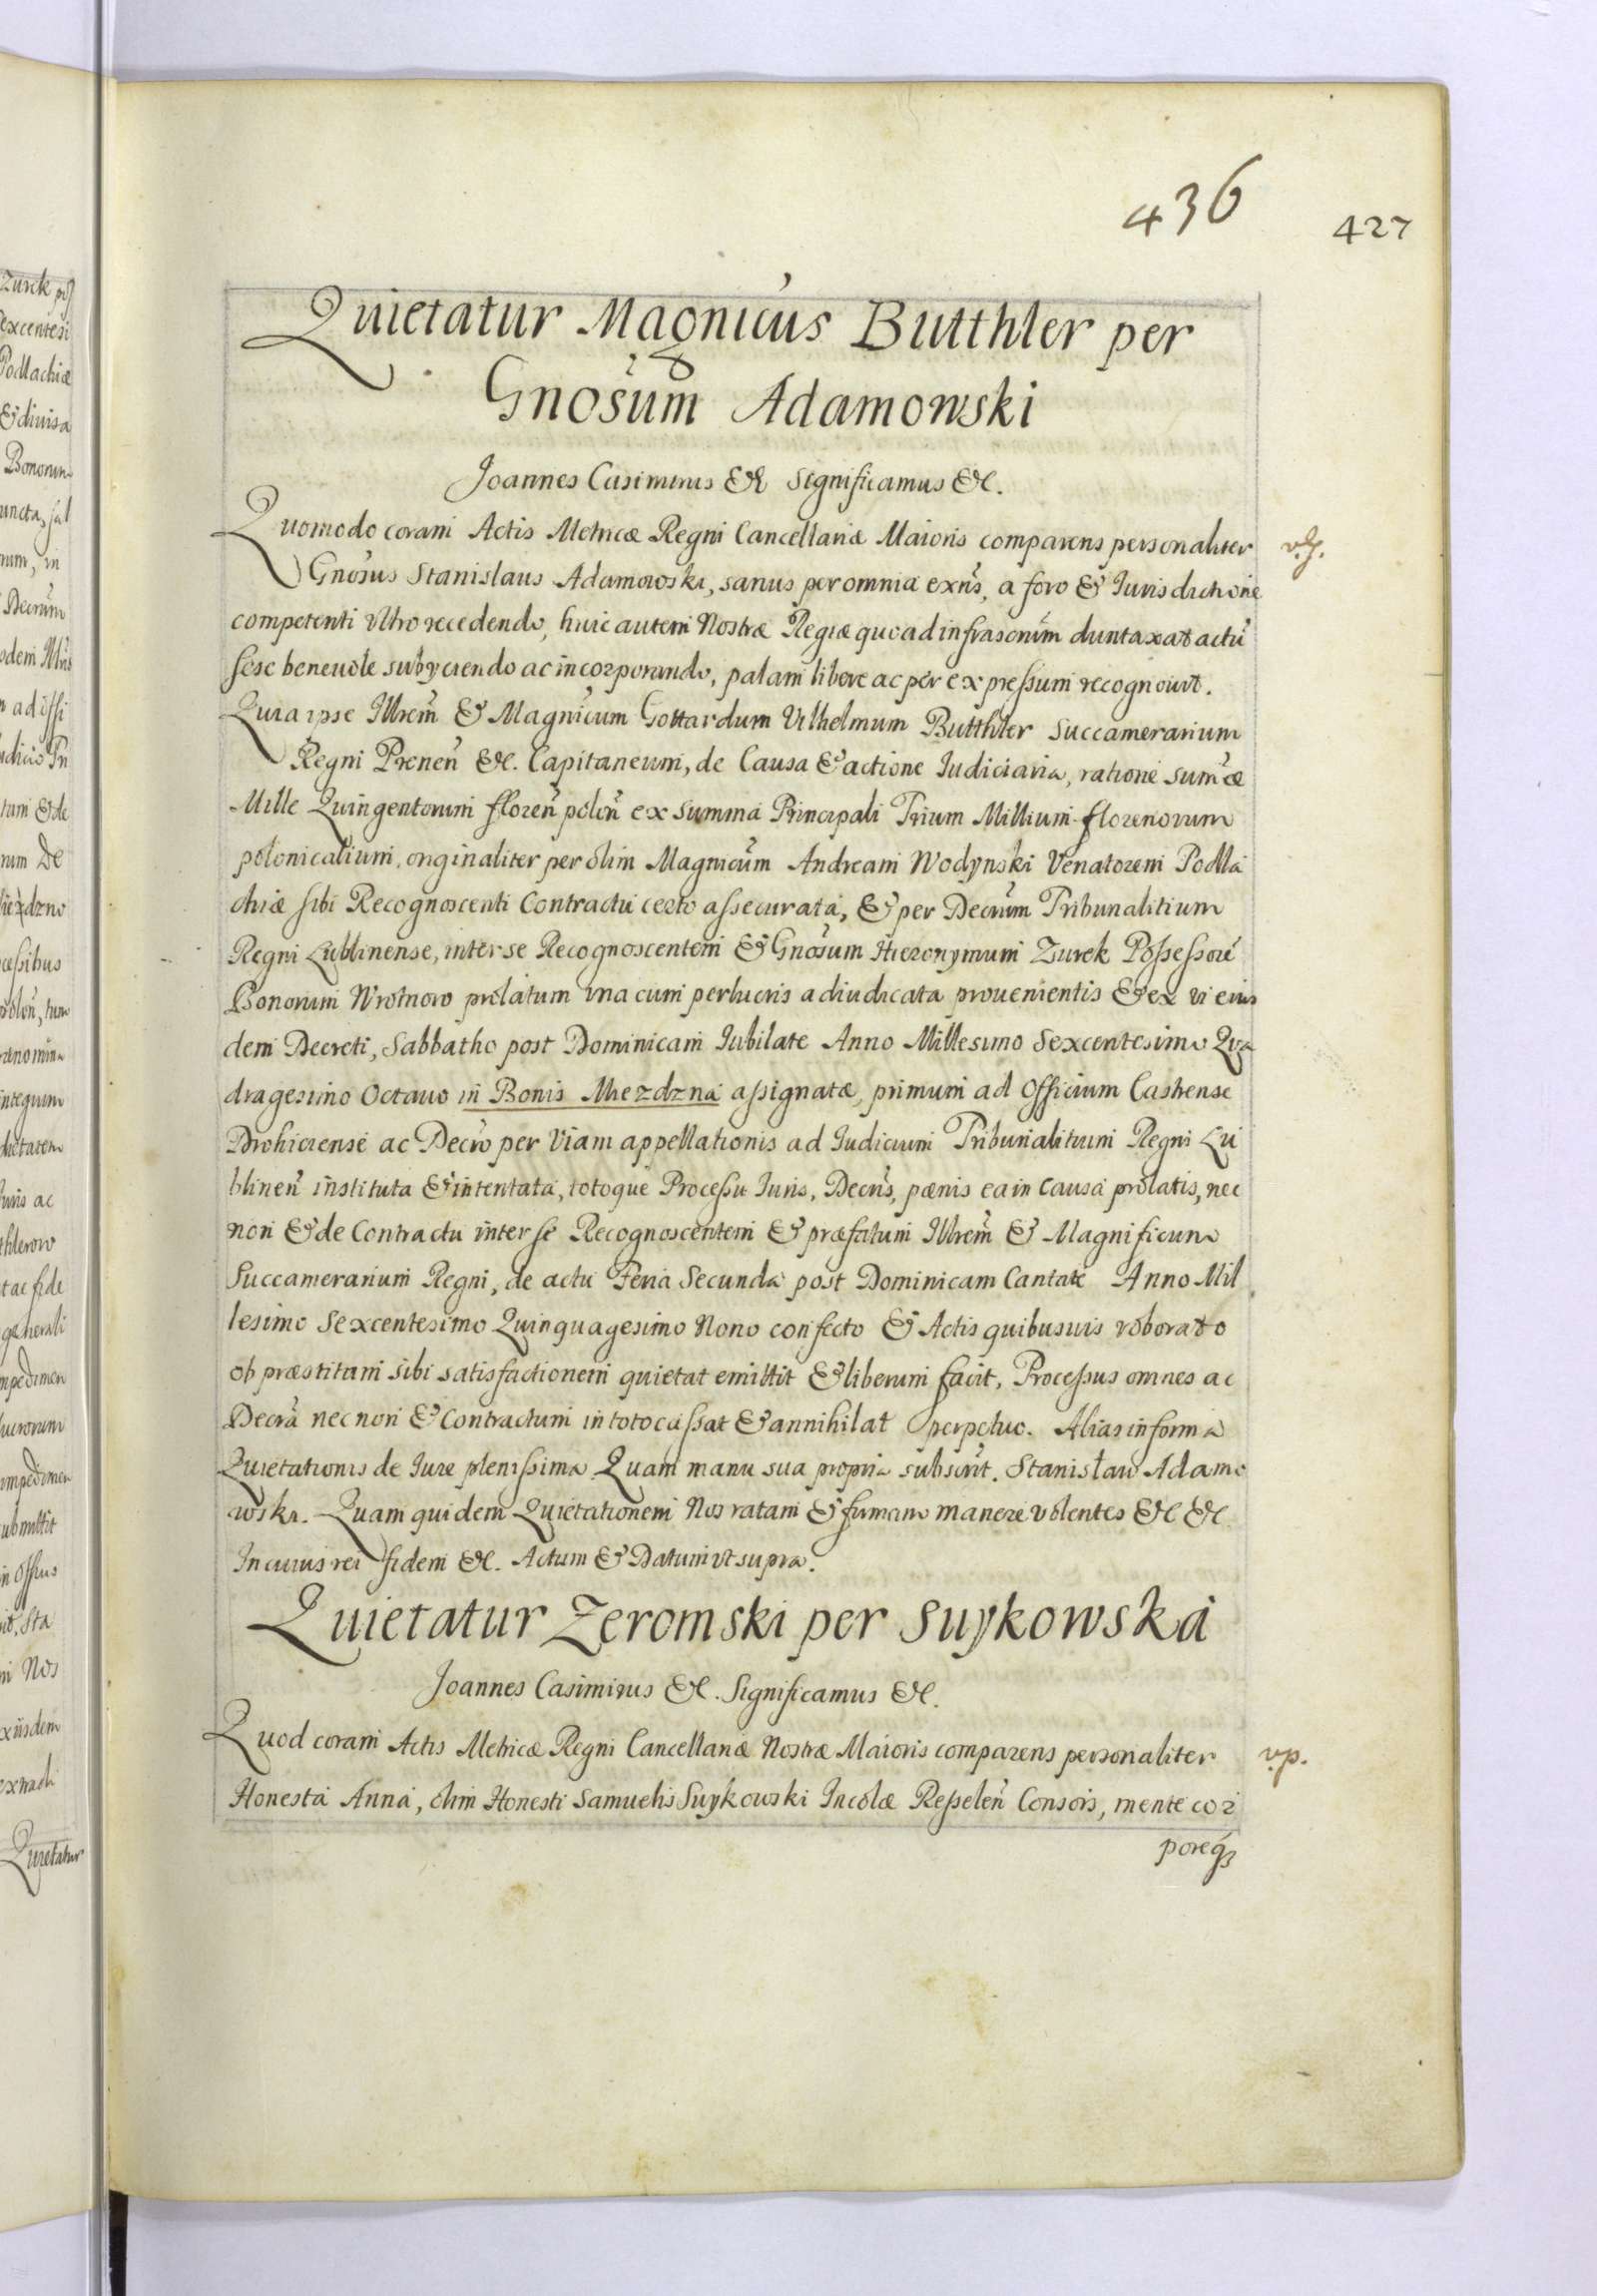 436
427
Quietatur Magnicus Butthler per
Gnosum Adamowski
Joannes Casimirus &c Significamus &c.
Quomodo coram Actis Metricæ Regni Cancellariæ Maioris comparens personaliter
Gnosus Stanislaus Adamowski, sanus per omnia exns, a foro & Iurisdictione
competenti vltro recedendo, huic autem Nostræ Regiæ quo ad infrascrum duntaxat actu
sese beneuole subyciendo ac incorporando, palam libere ac per expressum recognouit.
Quia ipse Illrem & Magnicum Gottardum Vilhelmum Butthler Succamerarium
Regni Prenen &c. Capitaneum, de Causa & actione Iudiciaria, ratione sumæ
Mille Quingentorum floren polon ex summa Principali Trium Millium florenorum
polonicalium, originaliter per olim Magnicum Andream Wodynski Venatorem Podla
chiæ sibi Recognoscenti Contractu certo assecurata, & per Decrum Tribunalitium
Regni Lublinense, inter se Recognoscentem & Gnosum Hieronymum Zurek Possessore
Bonorum Wrotnow prolatum vna cum perlucris adiudicata prouenientis & ex vi eius
dem Decreti, Sabbatho post Dominicam Iubilate Anno Millesimo Sexcentesimo Qua
dragesimo Octauo in Bonis Mezdzna assignatæ, primum ad Officium Castrense
Drohiciense ac Decro per Viam appellationis ad Iudicium Tribunalitium Regni Lu
blinen instituta & intentata, totoque Processu Iuris, Decris, pænis ea in causa prolatis, nec
non & de Contractu inter se Recognoscentem & præfatum Illrem & Magnificum
Succamerarium Regni, de actu Feria Secunda post Dominicam Cantate Anno Mil
lesimo Sexcentesimo Quinquagesimo Nono confecto & Actis quibusuis roborato
ob præstitam sibi satisfactionem quietat emittit & liberum facit, Processus omnes ac
Decra nec non & Contractum in toto cassat & annihilat perpetuo. Alias in forma
Quietationis de Iure plenissima. Quam manu sua propria subscrit. Stanisław Adamo
wski. Quam quidem Quietationem Nos ratam & firmam manere volentes &c &c
In cuius rei fidem &c. Actum & Datum vt supra.
Quietatur Zeromski per Suykowska
Joannes Casimirus &c. Significamus &c.
Quod coram Actis Metricæ Regni Cancellariæ Nostræ Maioris comparens personaliter
v.p.
Honesta Anna, olim Honesti Samuelis Suykowski Incolæ Resselen Consors, mente cor
poreq3